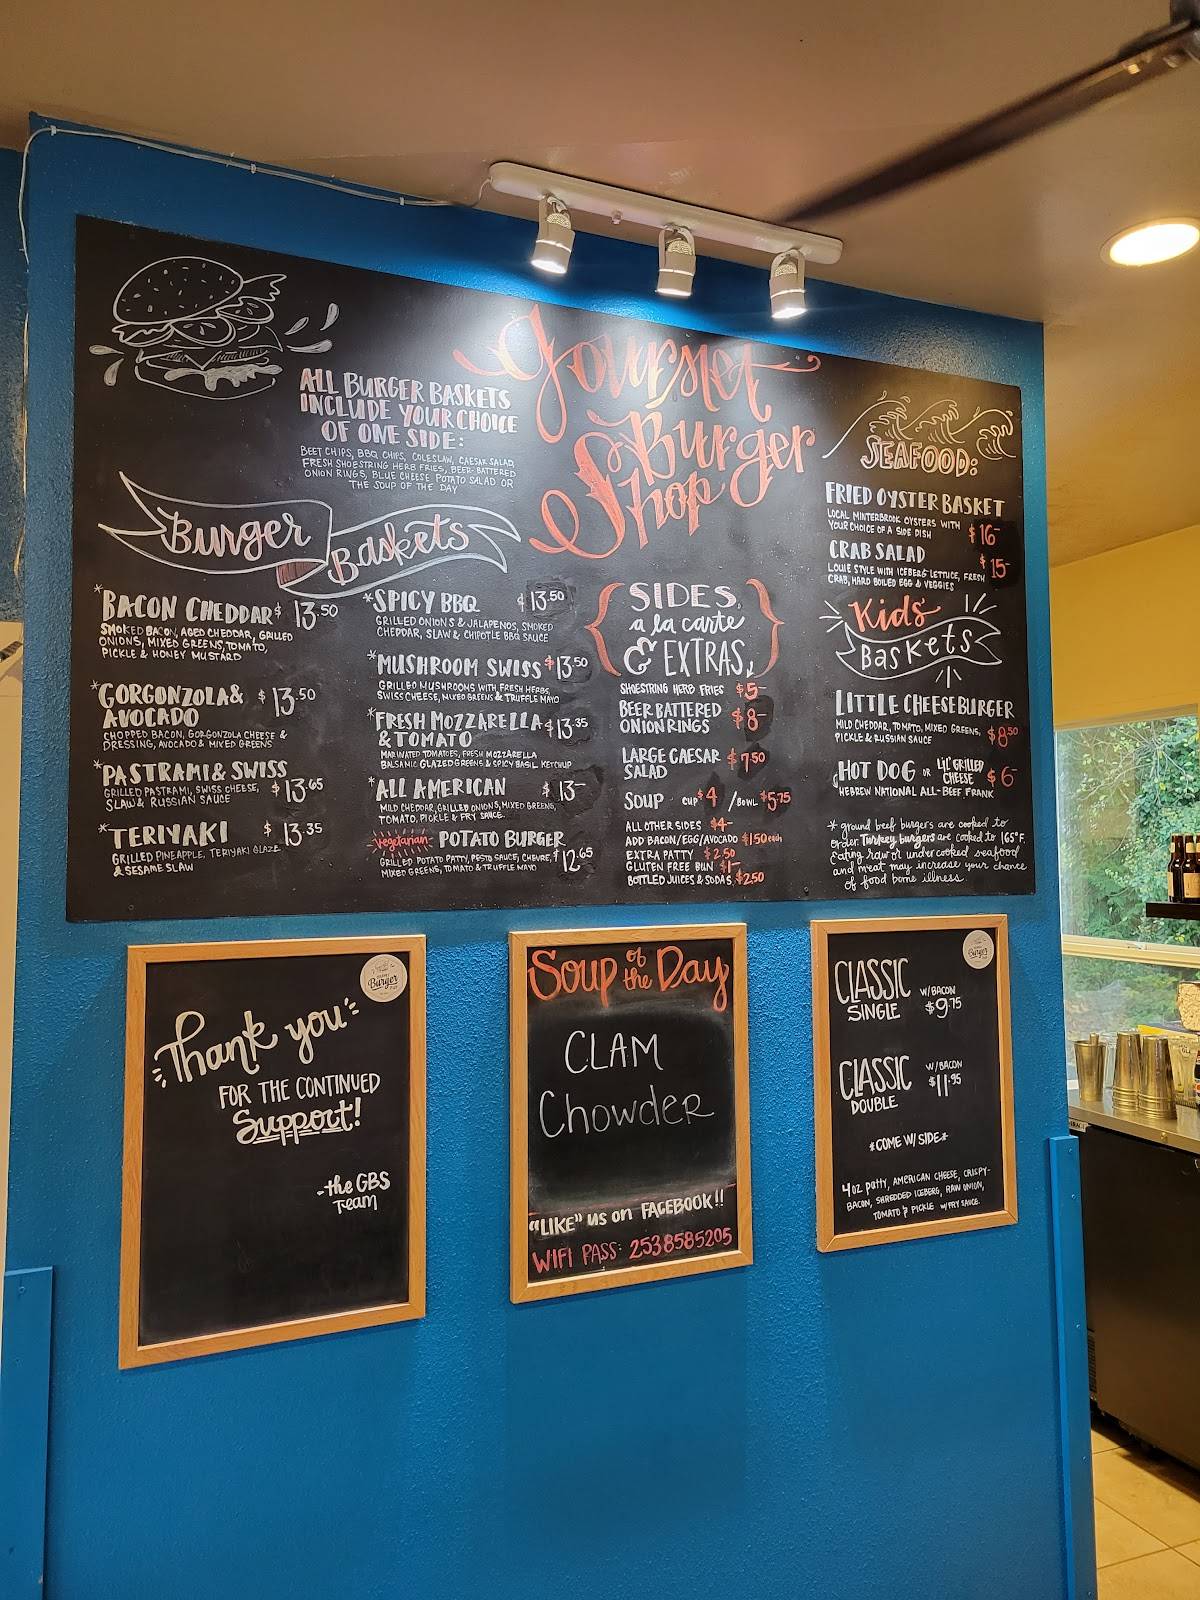 Gourmet
Burger
Shop
ALL BURGER BASKETS
INCLUDE YOUR CHOICE
OF ONE SIDE:
BEET CHIPS, BBQ CHIPS, COLESLAW, CAESAR SALAD,
FRESH SHOESTRING HERB FRIES, BEER-BATTERED
ONION RINGS, BLUE CHEESE POTATO SALAD OR
THE SOUP OF THE DAY
Burger
Baskets
*BACON CHEDDAR $13.50
SMOKED BACON, AGED CHEDDAR, GRILLED
ONIONS, MIXED GREENS, TOMATO,
PICKLE & HONEY MUSTARD
*GORGONZOLA & $13.50
AVOCADO
CHOPPED BACON, GORGONZOLA CHEESE &
DRESSING, AVOCADO & MIXED GREENS
*PASTRAMI & SWISS
GRILLED PASTRAMI, SWISS CHEESE, $13.65
SLAW & RUSSIAN SAUCE
*TERIYAKI $13.35
GRILLED PINEAPPLE, TERIYAKI GLAZE
& SESAME SLAW
*SPICY BBQ $13.50
GRILLED ONIONS & JALAPENOS, SMOKED
CHEDDAR, SLAW & CHIPOTLE BBQ SAUCE
*MUSHROOM SWISS $13.50
GRILLED MUSHROOMS WITH FRESH HERBS,
SWISS CHEESE, MIXED GREENS & TRUFFLE MAYO
*FRESH MOZZARELLA $13.35
& TOMATO
MARINATED TOMATOES, FRESH MOZZARELLA
BALSAMIC GLAZED GREENS & SPICY BASIL KETCHUP
*ALL AMERICAN $13-
MILD CHEDDAR, GRILLED ONIONS, MIXED GREENS,
TOMATO, PICKLE & FRY SAUCE
Vegetarian- POTATO BURGER
GRILLED POTATO PATTY, PESTO SAUCE, CHEVRE, $12.65
MIXED GREENS, TOMATO & TRUFFLE MAYO
SIDES
a la carte
& EXTRAS
SHOESTRING HERB FRIES $5-
BEER BATTERED
ONION RINGS $8-
LARGE CAESAR $7.50
SALAD
SOUP CUP $4 / BOWL $5.75
ALL OTHER SIDES $4-
ADD BACON/EGG/AVOCADO $1.50 each
EXTRA PATTY $2.50
GLUTEN FREE BUN $1-
BOTTLED JUICES & SODAS $2.50
SEAFOOD:
FRIED OYSTER BASKET
LOCAL MINTERBROOK OYSTERS WITH
YOUR CHOICE OF A SIDE DISH $16-
CRAB SALAD $15-
LOUIE STYLE WITH ICEBERG LETTUCE, FRESH
CRAB, HARD BOILED EGG & VEGGIES
Kids'
BASKETS
LITTLE CHEESEBURGER
MILD CHEDDAR, TOMATO, MIXED GREENS, $8.50
PICKLE & RUSSIAN SAUCE
HOT DOG OR LIL' GRILLED CHEESE $6-
HEBREW NATIONAL ALL-BEEF FRANK
* ground beef burgers are cooked to
order. Turkey burgers are cooked to 165°F.
Eating raw or undercooked seafood
and meat may increase your chance
of food borne illness.
Thank you
FOR THE CONTINUED
Support!
-the GBS
Team
Burger
Soup of the Day
CLAM
Chowder
"LIKE" us on FACEBOOK!!
WIFI PASS: 2538585205
Burger
CLASSIC W/BACON
SINGLE $9.75
CLASSIC W/BACON
DOUBLE $11.95
*COME W/ SIDE*
4oz patty, AMERICAN CHEESE, CRISPY-
BACON, SHREDDED ICEBERG, RAW ONION,
TOMATO & PICKLE W/FRY SAUCE.